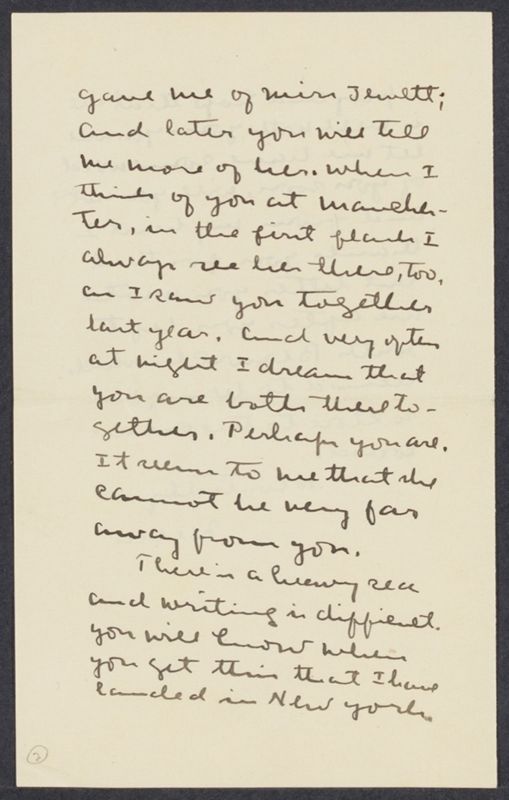 gave me of Miss Jewett;
and later you will tell
me more of her. When I
think of you at Manches-
ter, in the first flash I
always see her there, too,
as I saw you together
last year. And very often
at night I dream that
you are both there to-
gether. Perhaps you are.
It seems to me that she
cannot be very far
away from you.
There is a heavy sea
and writing is difficult.
You will know when
you get this that I have
landed in New York.
2